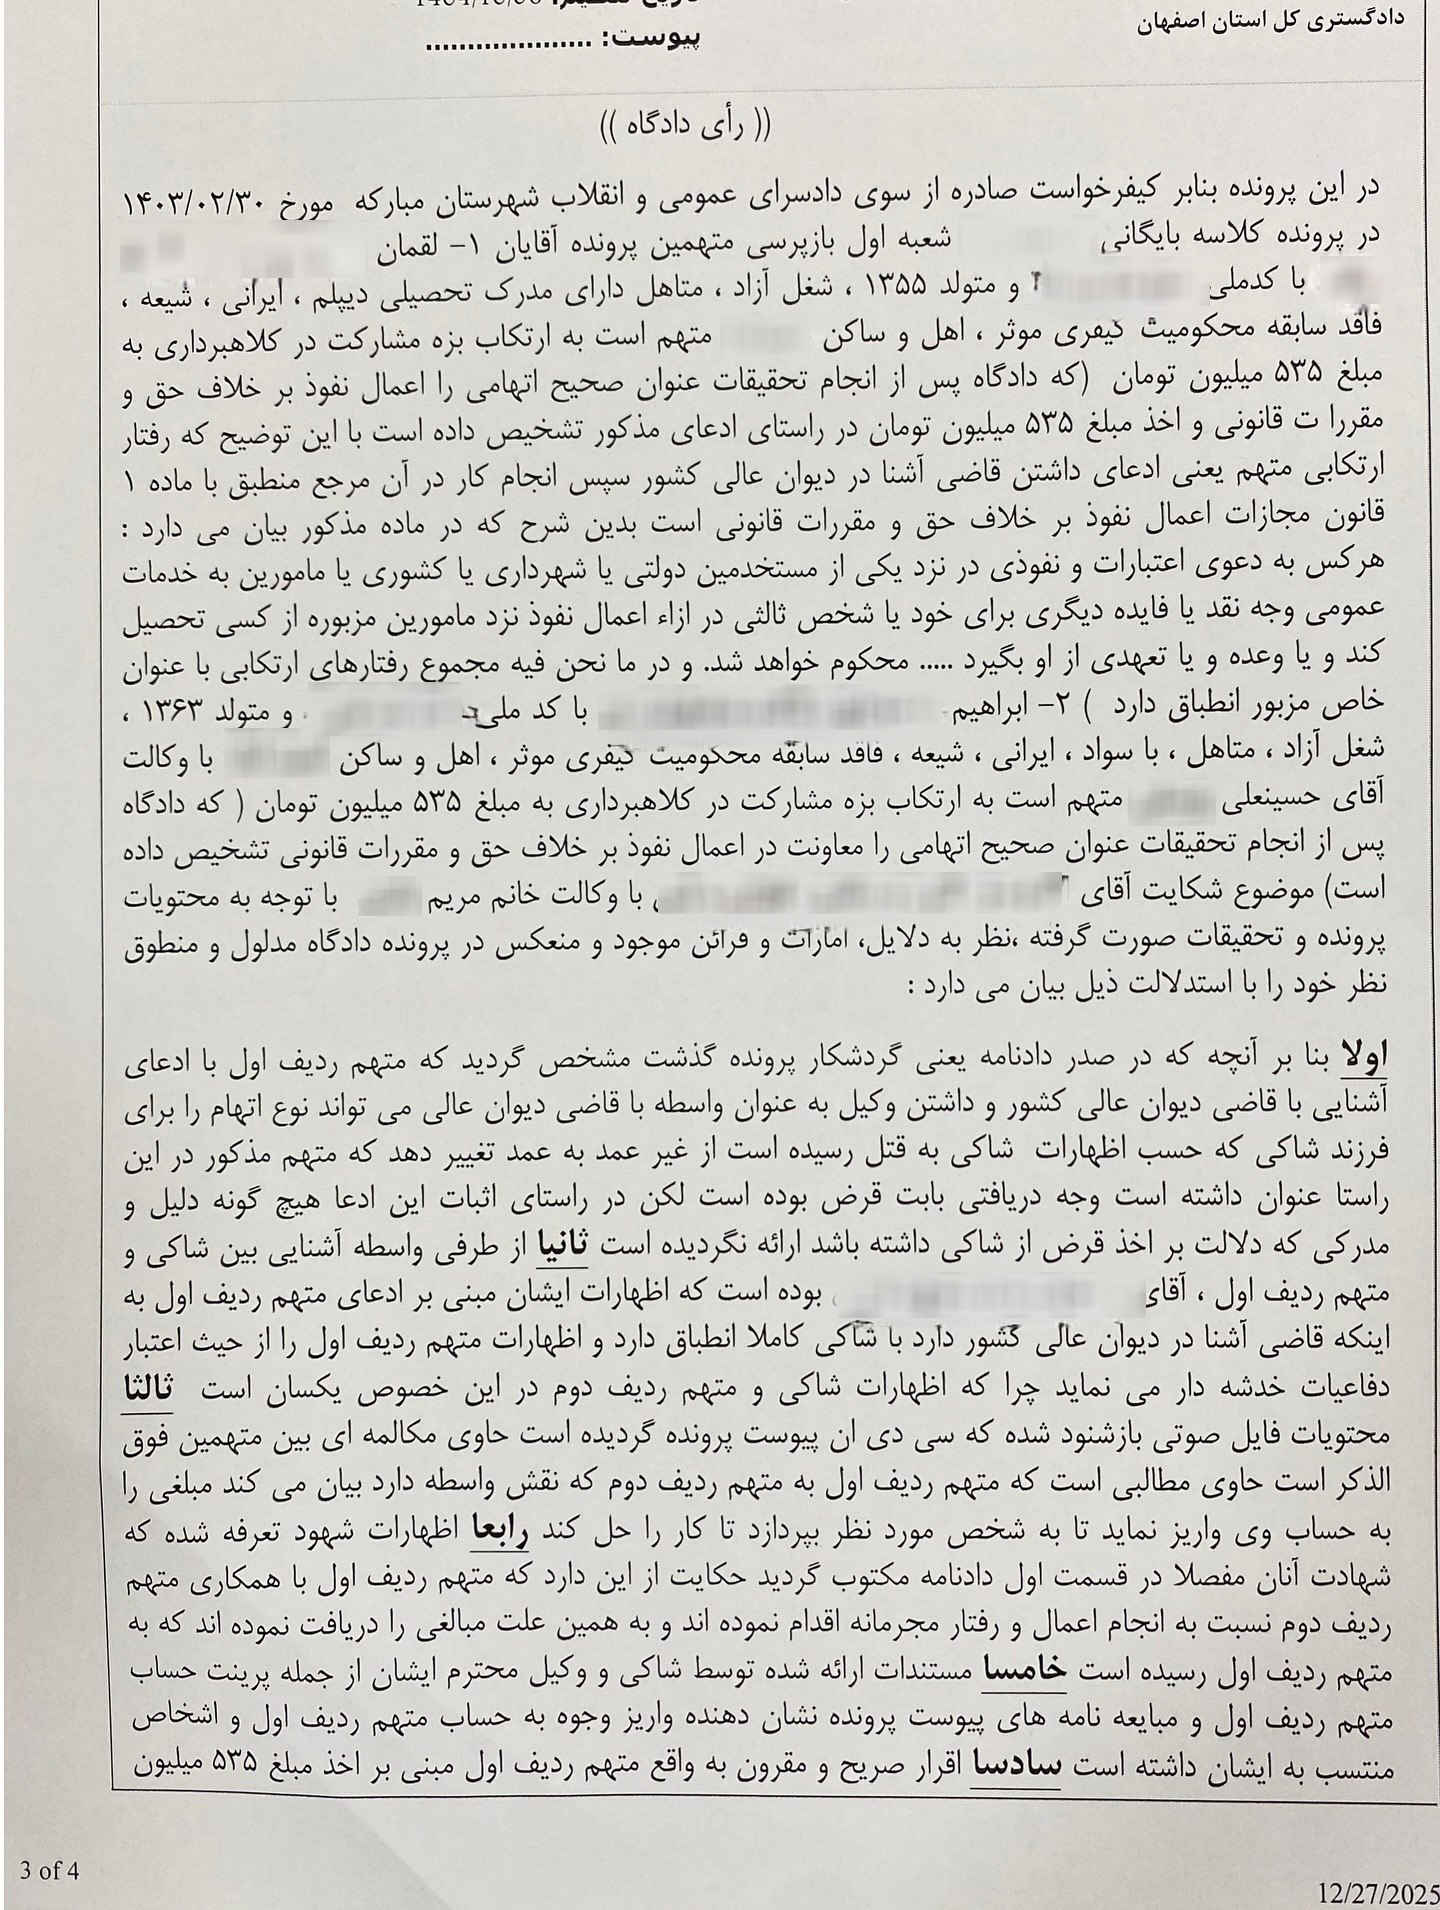 دادگستری کل استان اصفهان
پیوست: ....................
(( رأی دادگاه ))
در این پرونده بنابر کیفرخواست صادره از سوی دادسرای عمومی و انقلاب شهرستان مبارکه مورخ ۱۴۰۳/۰۲/۳۰
در پرونده کلاسه بایگانی شعبه اول بازپرسی متهمین پرونده آقایان ۱- لقمان
با کدملی و متولد ۱۳۵۵ ، شغل آزاد ، متاهل دارای مدرک تحصیلی دیپلم ، ایرانی ، شیعه ،
فاقد سابقه محکومیت کیفری موثر ، اهل و ساکن متهم است به ارتکاب بزه مشارکت در کلاهبرداری به
مبلغ ۵۳۵ میلیون تومان (که دادگاه پس از انجام تحقیقات عنوان صحیح اتهامی را اعمال نفوذ بر خلاف حق و
مقررا ت قانونی و اخذ مبلغ ۵۳۵ میلیون تومان در راستای ادعای مذکور تشخیص داده است با این توضیح که رفتار
ارتکابی متهم یعنی ادعای داشتن قاضی آشنا در دیوان عالی کشور سپس انجام کار در آن مرجع منطبق با ماده ۱
قانون مجازات اعمال نفوذ بر خلاف حق و مقررات قانونی است بدین شرح که در ماده مذکور بیان می دارد :
هرکس به دعوی اعتبارات و نفوذی در نزد یکی از مستخدمین دولتی یا شهرداری یا کشوری یا مامورین به خدمات
عمومی وجه نقد یا فایده دیگری برای خود یا شخص ثالثی در ازاء اعمال نفوذ نزد مامورین مزبوره از کسی تحصیل
کند و یا وعده و یا تعهدی از او بگیرد ..... محکوم خواهد شد. و در ما نحن فیه مجموع رفتارهای ارتکابی با عنوان
خاص مزبور انطباق دارد ) ۲- ابراهیم با کد ملی و متولد ۱۳۶۳ ،
شغل آزاد ، متاهل ، با سواد ، ایرانی ، شیعه ، فاقد سابقه محکومیت کیفری موثر ، اهل و ساکن با وکالت
آقای حسینعلی متهم است به ارتکاب بزه مشارکت در کلاهبرداری به مبلغ ۵۳۵ میلیون تومان ( که دادگاه
پس از انجام تحقیقات عنوان صحیح اتهامی را معاونت در اعمال نفوذ بر خلاف حق و مقررات قانونی تشخیص داده
است) موضوع شکایت آقای با وکالت خانم مریم با توجه به محتویات
پرونده و تحقیقات صورت گرفته ،نظر به دلایل، امارات و قرائن موجود و منعکس در پرونده دادگاه مدلول و منطوق
نظر خود را با استدلالت ذیل بیان می دارد :
اولا بنا بر آنچه که در صدر دادنامه یعنی گردشکار پرونده گذشت مشخص گردید که متهم ردیف اول با ادعای
آشنایی با قاضی دیوان عالی کشور و داشتن وکیل به عنوان واسطه با قاضی دیوان عالی می تواند نوع اتهام را برای
فرزند شاکی که حسب اظهارات شاکی به قتل رسیده است از غیر عمد به عمد تغییر دهد که متهم مذکور در این
راستا عنوان داشته است وجه دریافتی بابت قرض بوده است لکن در راستای اثبات این ادعا هیچ گونه دلیل و
مدرکی که دلالت بر اخذ قرض از شاکی داشته باشد ارائه نگردیده است ثانیا از طرفی واسطه آشنایی بین شاکی و
متهم ردیف اول ، آقای بوده است که اظهارات ایشان مبنی بر ادعای متهم ردیف اول به
اینکه قاضی آشنا در دیوان عالی کشور دارد با شاکی کاملا انطباق دارد و اظهارات متهم ردیف اول را از حیث اعتبار
دفاعیات خدشه دار می نماید چرا که اظهارات شاکی و متهم ردیف دوم در این خصوص یکسان است ثالثا
محتویات فایل صوتی بازشنود شده که سی دی ان پیوست پرونده گردیده است حاوی مکالمه ای بین متهمین فوق
الذکر است حاوی مطالبی است که متهم ردیف اول به متهم ردیف دوم که نقش واسطه دارد بیان می کند مبلغی را
به حساب وی واریز نماید تا به شخص مورد نظر بپردازد تا کار را حل کند رابعا اظهارات شهود تعرفه شده که
شهادت آنان مفصلا در قسمت اول دادنامه مکتوب گردید حکایت از این دارد که متهم ردیف اول با همکاری متهم
ردیف دوم نسبت به انجام اعمال و رفتار مجرمانه اقدام نموده اند و به همین علت مبالغی را دریافت نموده اند که به
متهم ردیف اول رسیده است خامسا مستندات ارائه شده توسط شاکی و وکیل محترم ایشان از جمله پرینت حساب
متهم ردیف اول و مبایعه نامه های پیوست پرونده نشان دهنده واریز وجوه به حساب متهم ردیف اول و اشخاص
منتسب به ایشان داشته است سادسا اقرار صریح و مقرون به واقع متهم ردیف اول مبنی بر اخذ مبلغ ۵۳۵ میلیون
3 of 4
12/27/2025